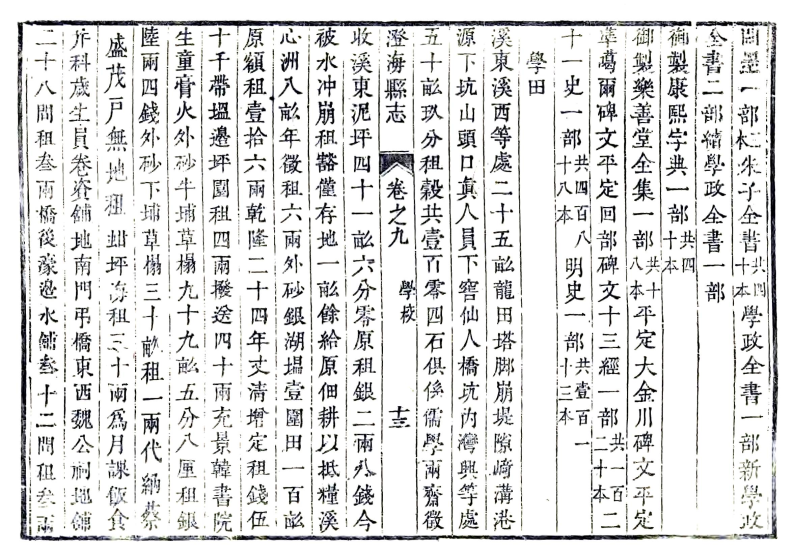 闈墨一部 朱子全書共四十本學政全書一部新學政
全書二部續學政全書一部
御製康熙字典一部共四十本
御製樂善堂全集一部共十八本平定大金川碑文平定
準葛爾碑文平定回部碑文十三經一部共一百二十本二
十一史一部共四百八十八本明史一部共壹百一十三本
學田
溪東溪西等處二十五畝龍田塔脚崩堤隙﨑溝港
源下坑山頭口真人員下窖仙人橋坑內灣興等處
五十畝玖分租穀共壹百零四石俱係儒學兩齋徵
澄海縣志 卷之九 學校 十三
收溪東泥坪四十一畝六分零原租銀二兩八錢今
被水冲崩租豁僅存地一畝餘給原佃耕以抵糧溪
心洲八畝年徵租六兩外砂銀湖塭壹圍田一百畝
原額租壹拾六兩乾隆二十四年丈清增定租錢伍
十千帶塭邊坪園租四兩撥送四十兩充景韓書院
生童膏火外砂牛埔草榻九十九畝五分八厘租銀
陸兩四錢外砂下埔草榻三十畝租一兩代納蔡
盛茂戶無地租 坪海租三十兩為月課飯食
并科歲生員卷資舖地南門弔橋東西魏公祠地舖
二十八間租叁兩橋後濠邊水舖叁十二間租叁兩